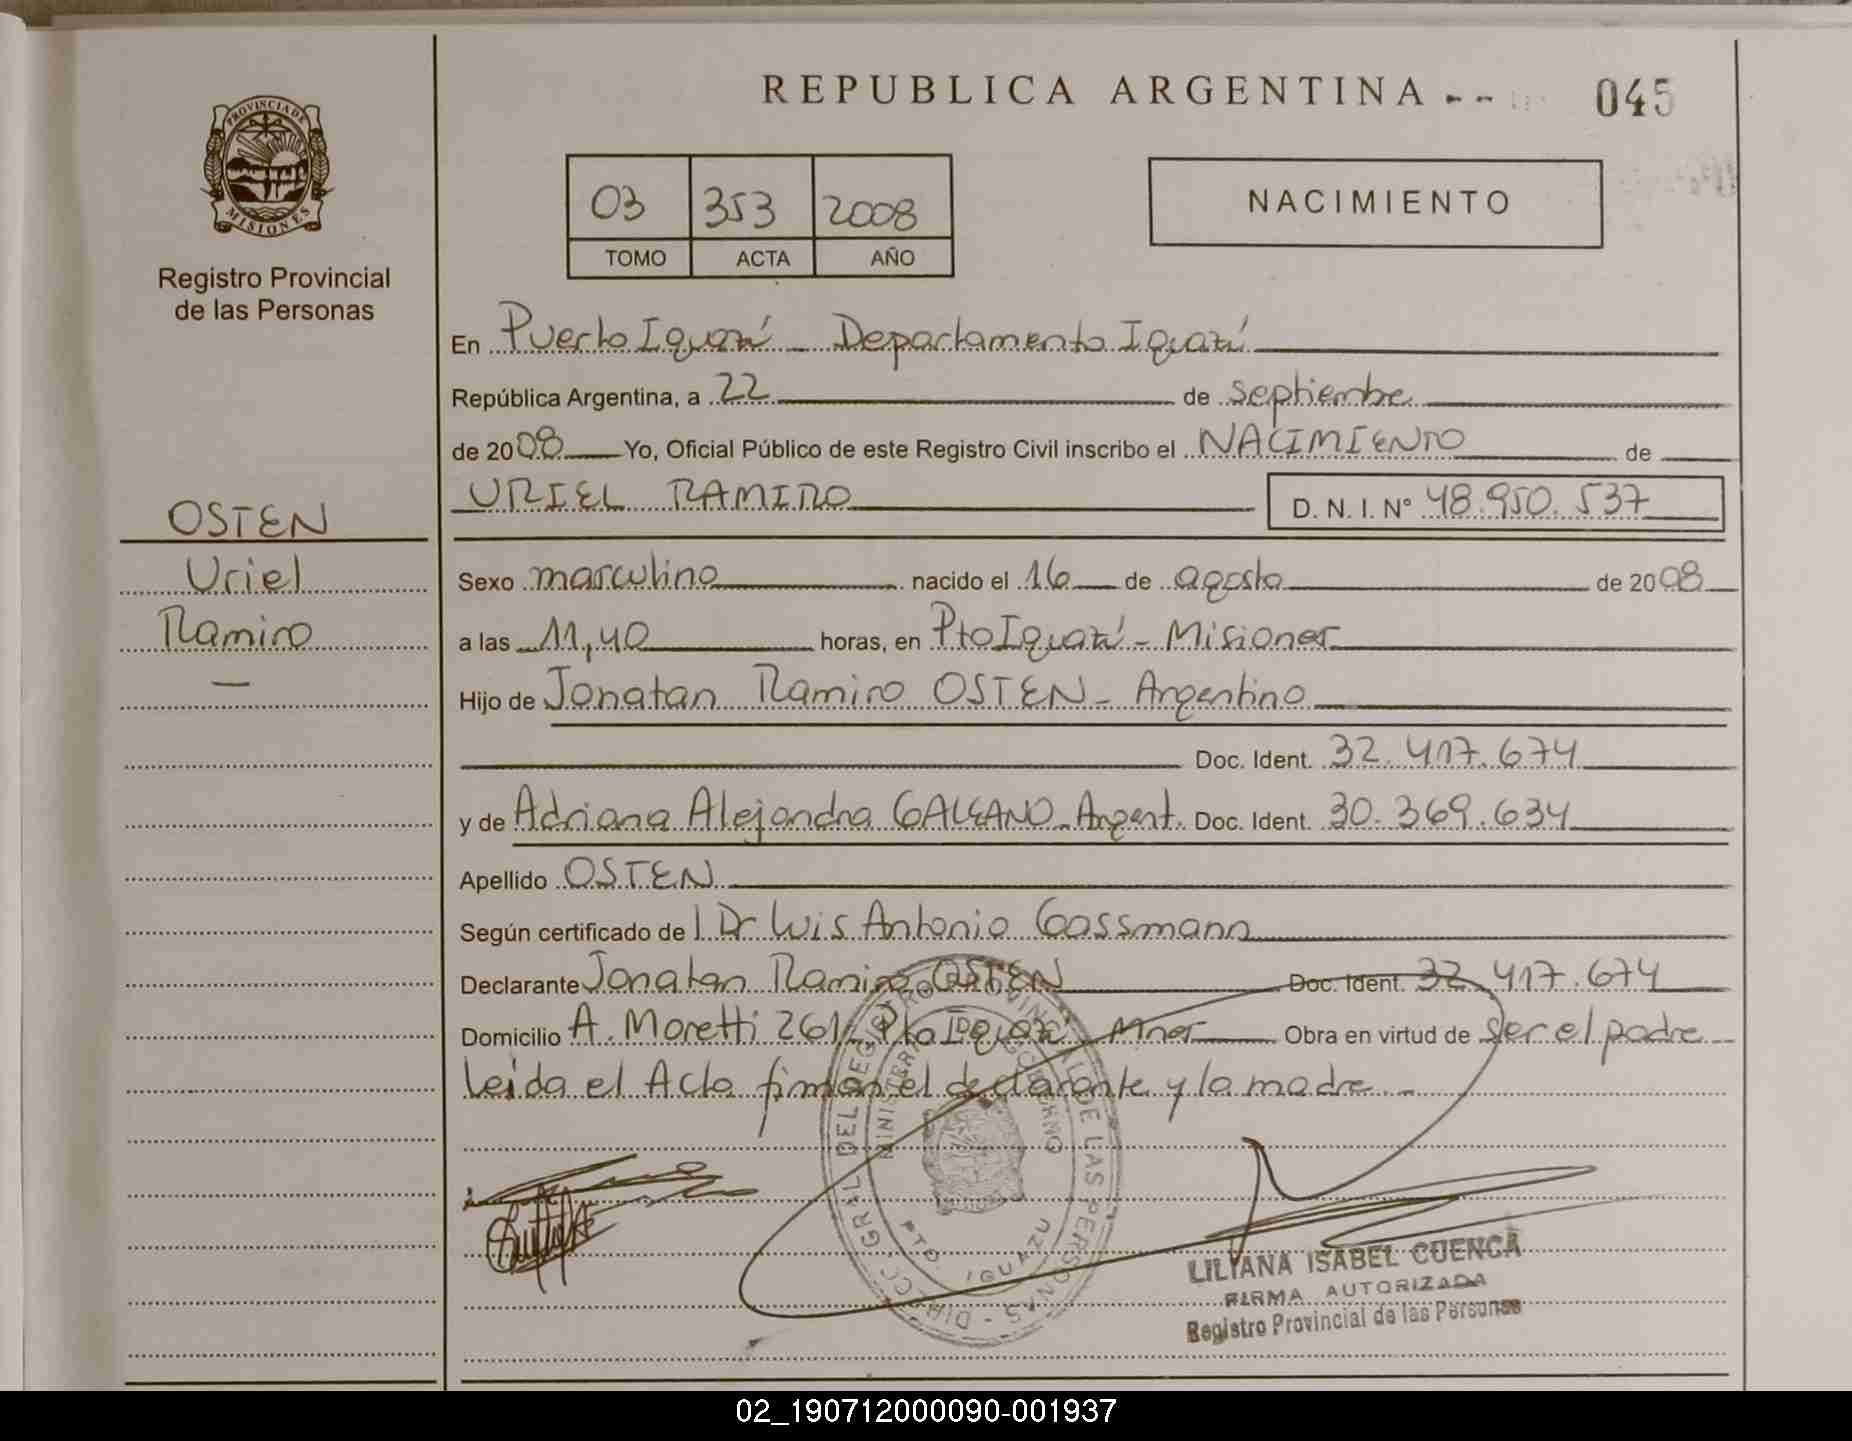 REPUBLICA ARGENTINA
045
PROVINCIA DE
MISIONES
Registro Provincial
de las Personas
03 353 2008
TOMO ACTA AÑO
NACIMIENTO
En Puerto Iguazú - Departamento Iguazú
República Argentina, a 22 de septiembre
de 2008 Yo, Oficial Público de este Registro Civil inscribo el NACIMIENTO de
URIEL RAMIRO D. N. I. N° 48.950.537
OSTEN
Uriel
Ramiro
Sexo masculino nacido el 16 de agosto de 2008
a las 11,40 horas, en Pto Iguazú - Misiones
Hijo de Jonatan Ramiro OSTEN - Argentino
Doc. Ident. 32.417.674
y de Adriana Alejandra GALEANO - Argent. Doc. Ident. 30.369.634
Apellido OSTEN
Según certificado del Dr Luis Antonio Gassmann
Declarante Jonatan Ramiro OSTEN Doc. Ident. 32.417.674
Domicilio A. Moretti 261 - Pto Iguazú Mnes Obra en virtud de ser el padre
leída el Acta firman el declarante y la madre. -
DIRECC. GRAL. DEL REGISTRO PROVINCIAL DE LAS PERSONAS -
MINISTERIO DE GOBIERNO
PTO. IGUAZU
LILIANA ISABEL CUENCA
FIRMA AUTORIZADA
Registro Provincial de las Personas
02_190712000090-001937